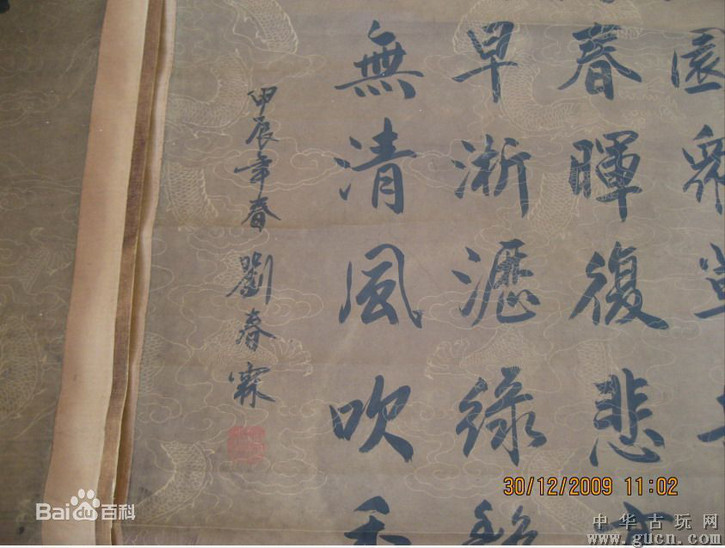 園
春暉復悲
早淅瀝綠
無清風吹
甲辰年春 劉春霖
30/12/2009 11:02
Baidu百科
中华古玩网
www.gucn.com